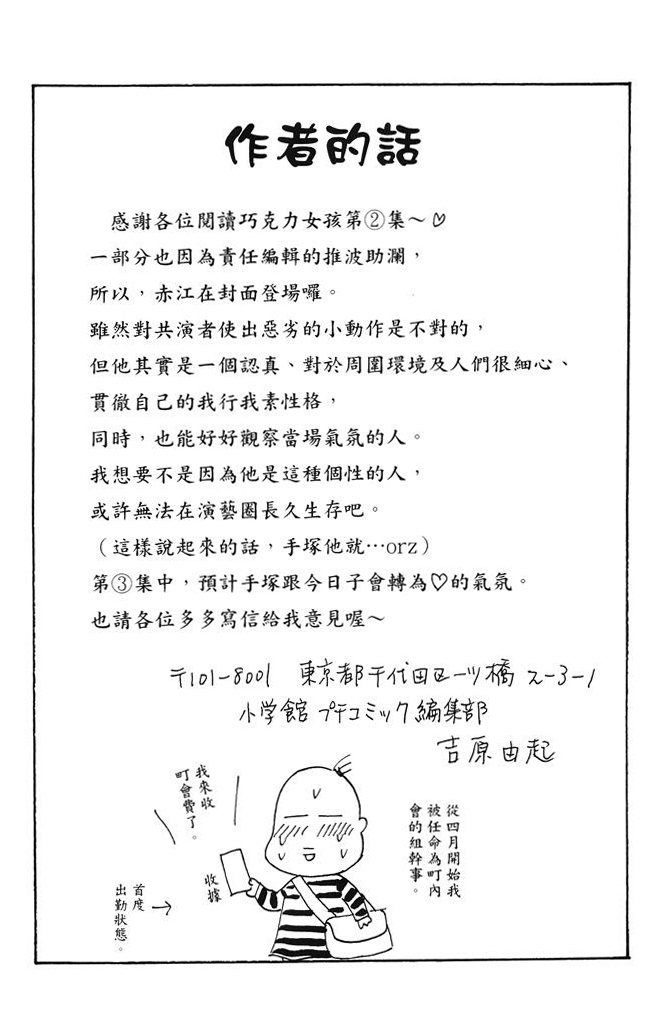 作者的話
感謝各位閱讀巧克力女孩第②集～♡
一部分也因為責任編輯的推波助瀾，
所以，赤江在封面登場囉。
雖然對共演者使出惡劣的小動作是不對的，
但他其實是一個認真、對於周圍環境及人們很細心、
貫徹自己的我行我素性格，
同時，也能好好觀察當場氣氛的人。
我想要不是因為他是這種個性的人，
或許無法在演藝圈長久生存吧。
（這樣說起來的話，手塚他就…orz）
第③集中，預計手塚跟今日子會轉為♡的氣氛。
也請各位多多寫信給我意見喔～
〒101-8001 東京都千代田区一ツ橋 2-3-1
小学館 プチコミック編集部
吉原由起
從四月開始我
被任命為町內
會的組幹事。
我來收
町會費了。
收據
首度
出勤狀態。→